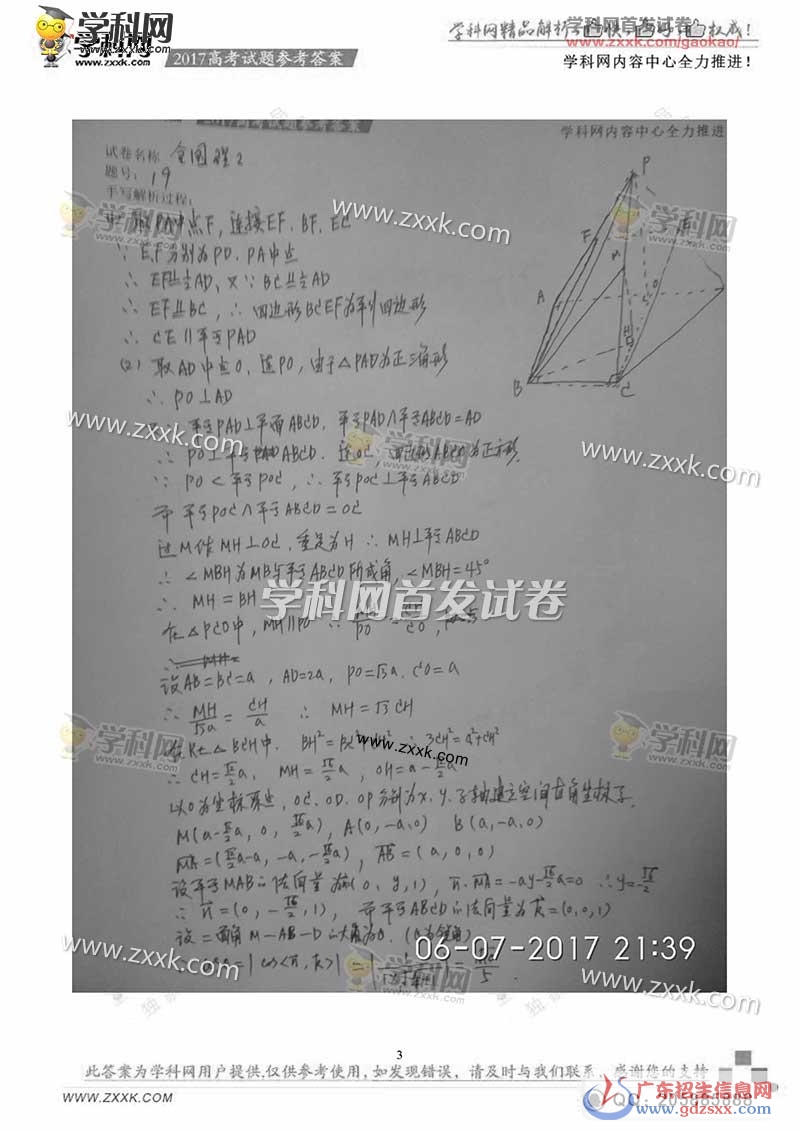 学科网
www.zxxk.com
2017高考试题参考答案
学科网精品解析
学科网首发试卷
www.zxxk.com/gaokao/
权威!
学科网内容中心全力推进!
2017高考试题参考答案
学科网内容中心全力推进
试卷名称 全国理2
题号: 19
手写解析过程:
取PA中点F, 连接EF, BF, EC
∵ E,F分别为PD, PA中点
∴ EF⫽½AD, 又∵ BC⫽½AD
∴ EF⫽BC, ∴ 四边形BCEF为平行四边形
∴ CE∥平面PAD
(2) 取AD中点O, 连PO, 由于△PAD为正三角形
∴ PO⊥AD
平面PAD⊥平面ABCD, 平面PAD∩平面ABCD=AD
∴ PO⊥平面ABCD. 连OC, 四边形ABCO为正方形.
∵ PO⊂平面POC, ∴ 平面POC⊥平面ABCD
而 平面POC∩平面ABCD=OC
过M作MH⊥OC, 垂足为H ∴ MH⊥平面ABCD
∴ ∠MBH为MB与平面ABCD所成角, ∠MBH=45°
∴ MH=BH
在△PCO中, MH∥PO ∴
设AB=BC=a, AD=2a, PO=√3a, CO=a
∴ MH/√3a = CH/a ∴ MH=√3CH
在Rt△BCH中, BH²=BC²+CH² ∴ 3CH²=a²+CH²
∴ CH=√2/2a, MH=√6/2a, OH=a-√2/2a
以O为坐标原点, OC, OD, OP分别为x, y, z轴建立空间直角坐标系.
M(a-√2/2a, 0, √6/2a), A(0, -a, 0) B(a, -a, 0)
MA=(√2/2a-a, -a, -√6/2a), AB=(a, 0, 0)
设平面MAB的法向量为n(0, y, 1), n·MA=-ay-√6/2a=0 ∴y=-√6/2
∴ n=(0, -√6/2, 1), 而平面ABCD的法向量为k=(0,0,1)
设二面角M-AB-D的大小为θ. (θ为锐角)
=|cos<n, k>| = = √10/5.
P
F
E
M
A
O
H
B
C
www.zxxk.com
www.zxxk.com
www.zxxk.com
学科网
学科网首发试卷
www.zxxk.com
www.zxxk.com
www.zxxk.com
06-07-2017 21:39
3
此答案为学科网用户提供,仅供参考使用, 如发现错误, 请及时与我们联系, 感谢您的支持
WWW.ZXXK.COM
广东招生信息网
www.gdzsxx.com